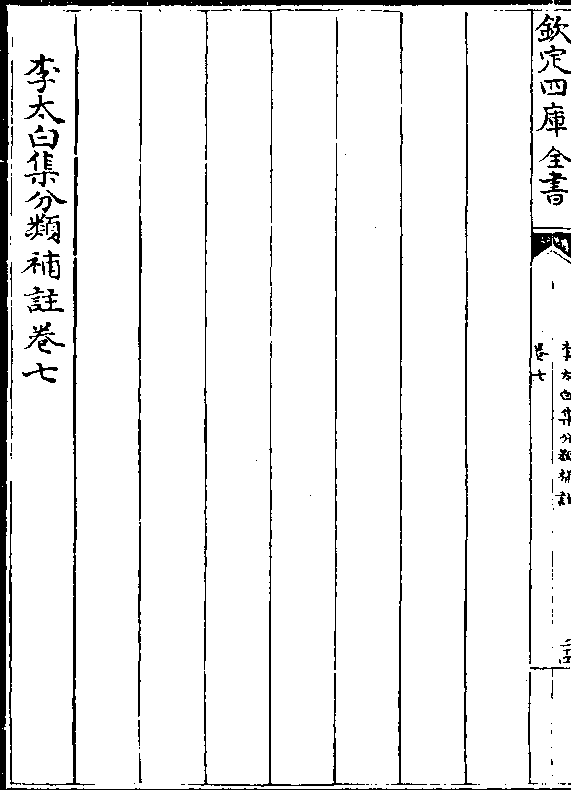 欽定四庫全書
李太白集分類補註
卷七
李太白集分類補註卷七